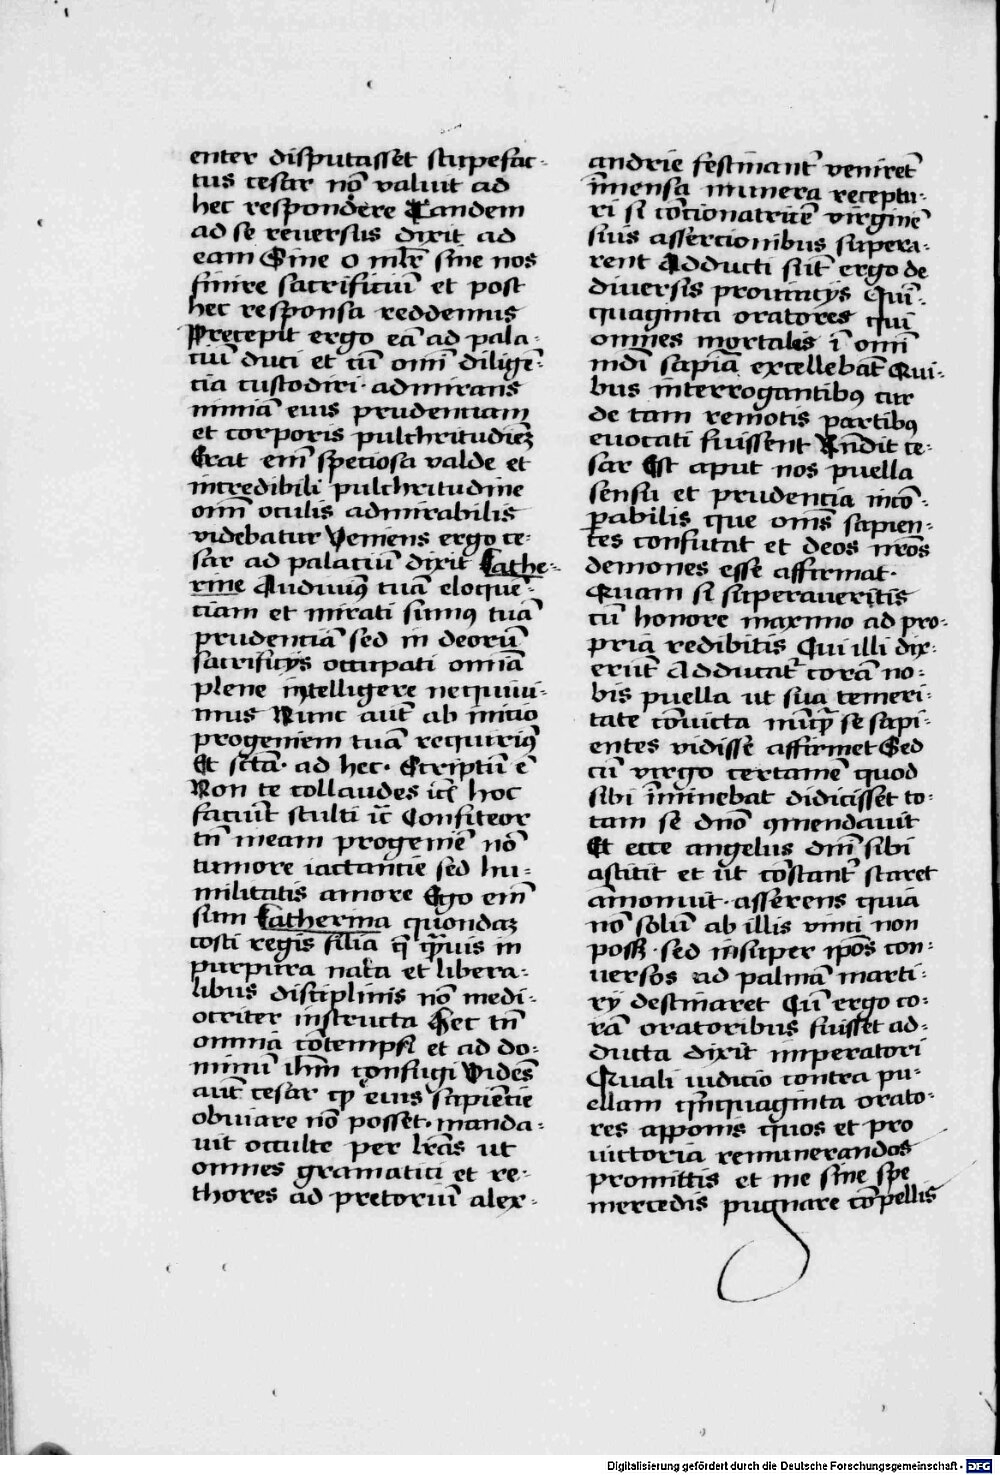 enter disputasset stupefac-
tus cesar nō valuit ad
hec respondere Tandem
ad se reversus dixit ad
eam Sine o mulr̄ sine nos
finire sacrificiū et post
hec responsa reddemus
Precepit ergo eā ad pala-
ciū duci et cū omī diligē-
cia custodiri · admirans
nimiā eius prudentiam
et corporis pulchritudiēz
Erat em̄ speciosa valde et
incredibili pulchritudine
om̄ oculis admirabilis
videbatur Veniens ergo ce-
sar ad palaciū dixit Kathe-
rine Audiuiꝰ tuā eloquē-
ciam et mirati sumꝰ tuā
prudenciā sed in deorū
sacrificijs occupati om̄ia
plene intelligere nequiui-
mus Nunc aut̄ ab inicio
progeniem tuā requiriꝰ
Et sctā · ad hec · Scriptū ē
Non te collaudes ic̄ hoc
faciūt stulti ic̄ Confiteor
tn̄ meam progeniē nō
tumore iactancie sed hu-
militatis amore Ego em̄
sum Katherina quondaz
costi regis filia q̄ qͣuis in
purpura nata et libera-
libus disciplinis nō medi-
ocriter instructa Hec tn̄
omnia cōtempsi et ad do-
minū ihm̄ confugi Vidēs
aut̄ cesar qꝫ eius sapiēcie
obuiare nō posset · manda-
uit occulte per lrās ut
omnes gramatici et re-
thores ad pretoriū alex-
andrie festinant̄ veniret̄
īmensa munera receptu-
ri si cōcionatricē virginē
suis assercionibus supera-
rent Adducti sūt ergo de
diuersis prouincijs Qui-
quaginta oratores qui
omnes mortales ī omī
mdī sapiā excellebāt Qui-
bus interrogantibꝰ cur
de tam remotis partibꝰ
euocati fuissent Rn̄dit ce-
sar Est aput nos puella
sensu et prudencia incō-
pabilis que oms̄ sapien-
tes confutat et deos nrōs
demones esse affirmat ·
Quam si superaueritis
cū honore maximo ad pro-
pria redibitis Qui illi dix-
erūt Adducat̉ corā no-
bis puella ut sua temeri-
tate cōuicta nūqͣ se sapi-
entes vidisse affirmet Sed
cū virgo certamē quod
sibi īminebat didicisset to-
tam se dnō ꝯmendauit
Et ecce angelus dnī sibi
astitit et ut cōstant̉ staret
amonuit · asserens quia
nō solū ab illis vinci non
possꝫ · sed insuper ipōs con-
uersos ad palmā marti-
rij destinaret Cū ergo co-
rā oratoribus fuisset ad-
ducta dixit imperatori
Quali iudicio contra pu-
ellam quīquaginta orato-
res apponis quos et pro
uictoria remunerandos
promittis et me sine spe
mercedis pugnare cōpellis
Digitalisierung gefördert durch die Deutsche Forschungsgemeinschaft - DFG